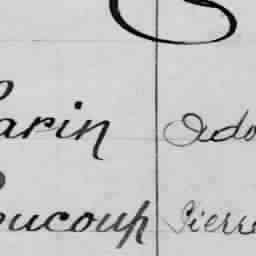 arin Ado
eucoup Pierre